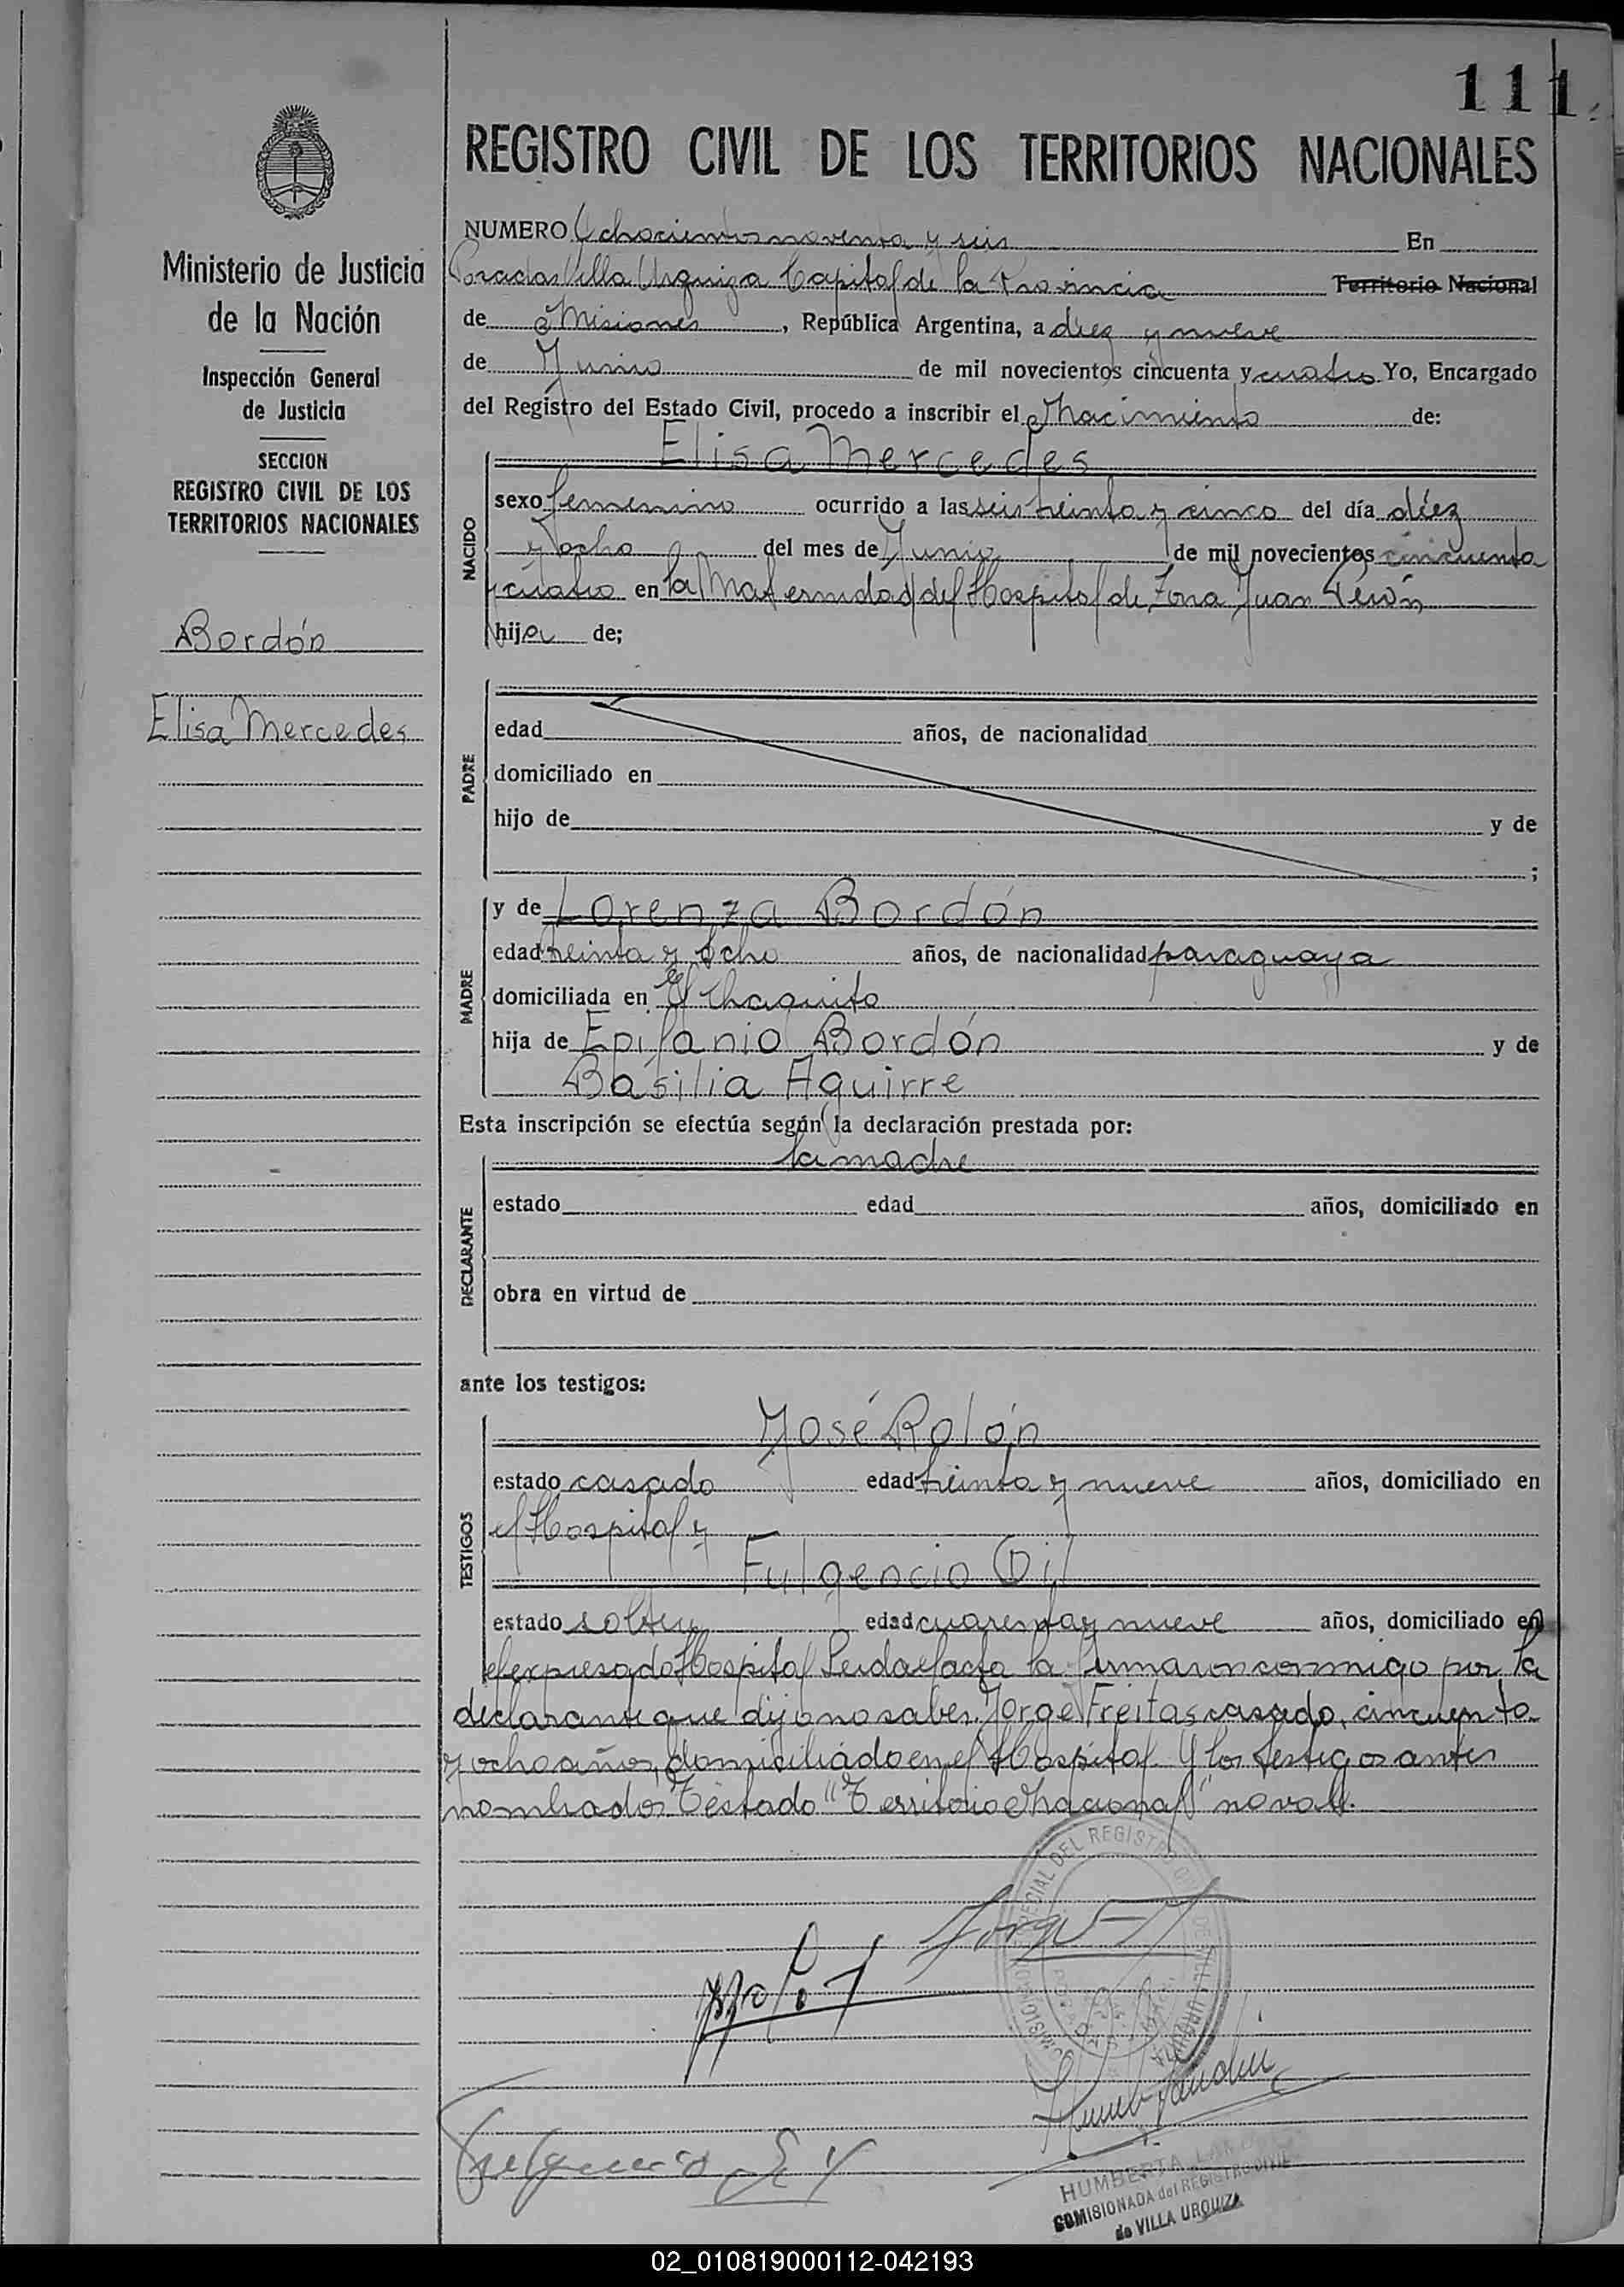 111
REGISTRO CIVIL DE LOS TERRITORIOS NACIONALES
NUMERO Ochocientos noventa y seis En
Posadas Villa Urquiza Capital de la Provincia Territorio Nacional
de Misiones, República Argentina, a diez y nueve
de Junio de mil novecientos cincuenta y cuatro Yo, Encargado
del Registro del Estado Civil, procedo a inscribir el Nacimiento de:
Ministerio de Justicia
de la Nación
Inspección General
de Justicia
SECCION
REGISTRO CIVIL DE LOS
TERRITORIOS NACIONALES
Bordón
Elisa Mercedes
NACIDO
Elisa Mercedes
sexo femenino ocurrido a las seis treinta y cinco del día diez
y ocho del mes de Junio de mil novecientos cincuenta
y cuatro en la Maternidad del Hospital de Zona Juan Perón
hija de;
PADRE
edad años, de nacionalidad
domiciliado en
hijo de y de
;
MADRE
y de Lorenza Bordón
edad treinta y ocho años, de nacionalidad paraguaya
domiciliada en El Chaquito
hija de Epifanio Bordón y de
Basilia Aguirre
Esta inscripción se efectúa según la declaración prestada por:
DECLARANTE
la madre
estado edad años, domiciliado en
obra en virtud de
ante los testigos:
TESTIGOS
José Rolón
estado casado edad treinta y nueve años, domiciliado en
el Hospital y
Fulgencio Gil
estado soltero edad cuarenta y nueve años, domiciliado en
el expresado Hospital Leida el acta la firmaron conmigo por la
declarante que dijo no saber. Jorge Freitas casado, cincuenta
y ocho años, domiciliado en el Hospital. Y los testigos antes
nombrados Testado "Territorio Nacional" no vale.
HUMBERTA
COMISIONADA del REGISTRO CIVIL
de VILLA URQUIZA
02_010819000112-042193